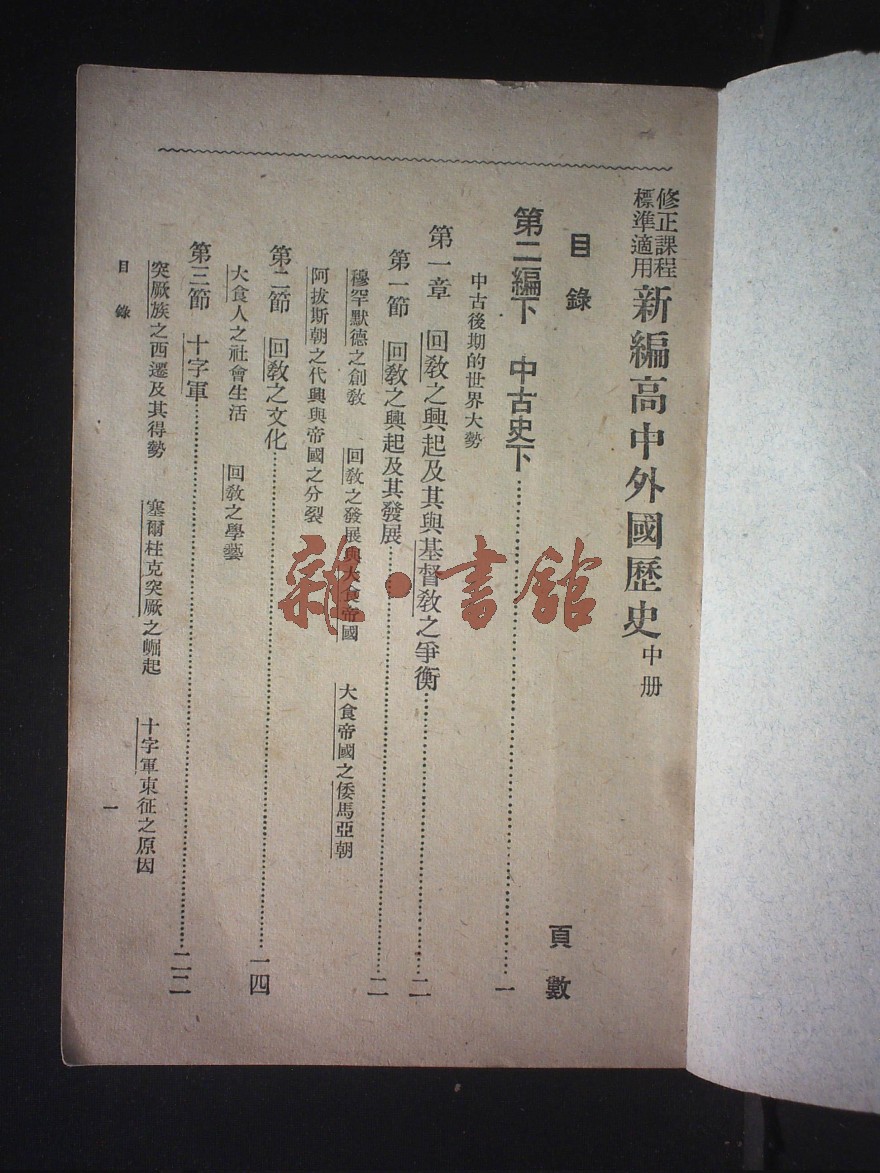 修正課程
標準適用
新編高中外國歷史 中册
目錄 頁數
第二編下 中古史下……一
中古後期的世界大勢
第一章 回教之興起及其與基督教之爭衡……二
第一節 回教之興起及其發展……二
穆罕默德之創教 回教之發展與大食帝國 大食帝國之倭馬亞朝
阿拔斯朝之代興與帝國之分裂
第二節 回教之文化……一四
大食人之社會生活 回教之學藝
第三節 十字軍……二二
突厥族之西遷及其得勢 塞爾柱克突厥之崛起 十字軍東征之原因
目錄 一
雜·書館